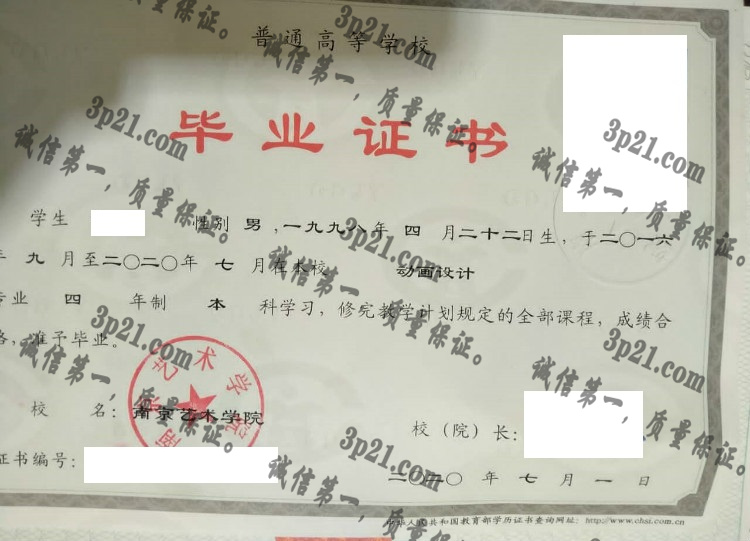 普通高等学校
毕业证书
学生 性别 男,一九九八年 四 月二十二日生,于二〇一六
年 九 月至二〇二〇年 七 月在本校 动画设计
专业 四 年制 本 科学习,修完教学计划规定的全部课程,成绩合
格,准予毕业。
校 名:南京艺术学院
校(院)长:
证书编号:
二〇二〇 年 七 月 一 日
中华人民共和国教育部学历证书查询网址:http://www.chsi.com.cn
南京艺术学院
3p21.com
诚信第一,质量保证。
3p21.com
诚信第一,质量保证。
3p21.com
诚信第一,质量保证。
3p21.com
诚信第一,质量保证。
3p21.com
诚信第一,质量保证。
3p21.com
诚信第一,质量保证。
3p21.com
诚信第一,质量保证。